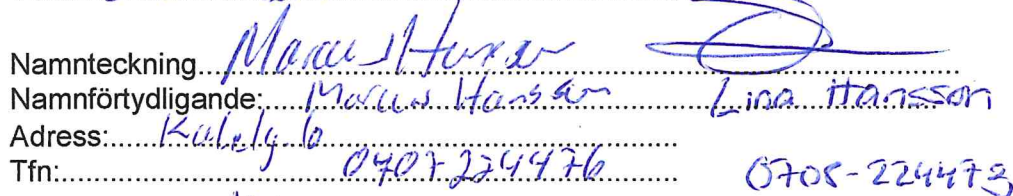 Namnteckning... Marcus Hansson
Namnförtydligande: Marcus Hansson Lina Hansson
Adress:
Tfn: 0707224476 0705-224473